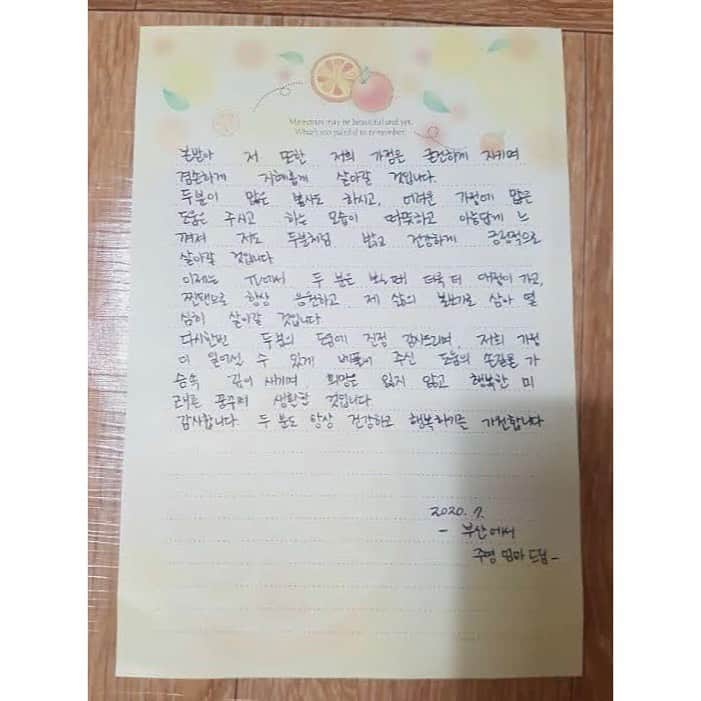 Memories may be beautiful and yet,
What's too painful to remember.
본받아 저 또한 저희 가정은 굳건하게 지키며
겸손하게 지혜롭게 살아갈 것입니다.
두분이 많은 봉사도 하시고, 어려운 가정에 많은
도움은 주시고 하는 모습이 따뜻하고 아름답게 느
껴져 저도 두분처럼 밝고 건강하게 긍정적으로
살아갈 것입니다
이제는 TV에서 두 분은 볼 때 더욱 더 애정이 가고,
찐팬으로 항상 응원하고 제 삶의 본보기로 삼아 열
심히 살아갈 것입니다
다시한번 두분의 도움에 진정 감사드리며, 저희 가정
이 일어설 수 있게 베풀어 주신 도움의 손길을 가
슴속 깊이 새기며, 희망은 잃지 않고 행복한 미
래를 꿈꾸며 생활할 것입니다
감사합니다. 두 분도 항상 건강하고 행복하기를 기원합니다
2020. 7.
- 부산에서
주영 엄마 드림-